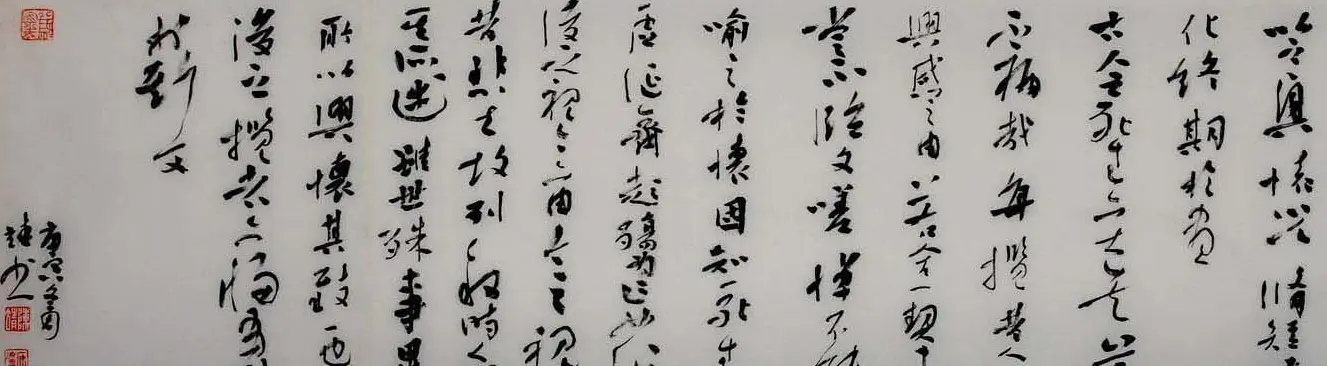 以之興懷況脩短
化終期於盡
古人云死生亦大矣豈
不痛哉每攬昔人
興感之由若合一契
嘗不臨文嗟悼不能
喻之於懷固知一死生
虛誕齊彭殤為妄作
後之視今亦由今之視
昔悲夫故列敘時人
其所述雖世殊事異
所以興懷其致一也
後之攬者亦將有感
於斯文
庚寅